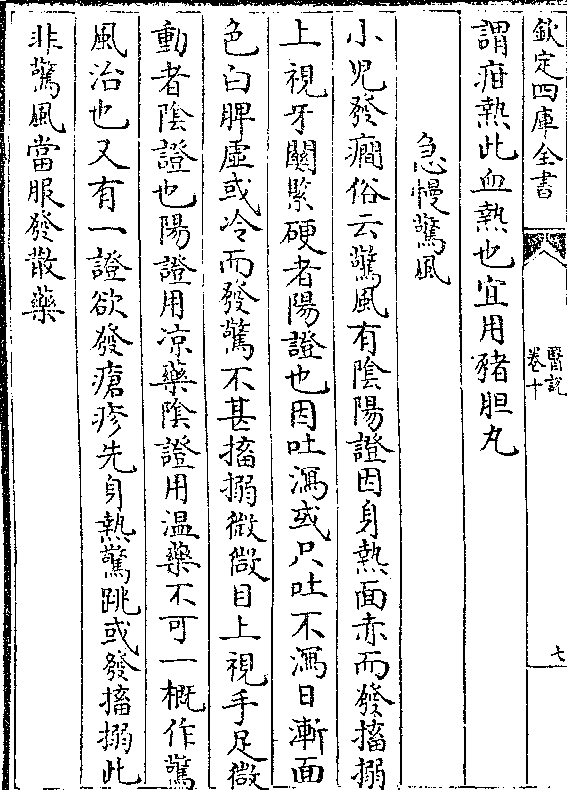 欽定四庫全書
醫說
卷十
七
謂疳熱此血熱也宜用豬胆丸
急慢驚風
小児發癎俗云驚風有陰陽證因身熱面赤而發搐搦
上視牙關緊硬者陽證也因吐瀉或只吐不瀉日漸面
色白脾虚或冷而發驚不甚搐搦微微目上視手足微
動者陰證也陽證用凉藥陰證用温藥不可一概作驚
風治也又有一證欲發瘡疹先身熱驚跳或發搐搦此
非驚風當服發散藥